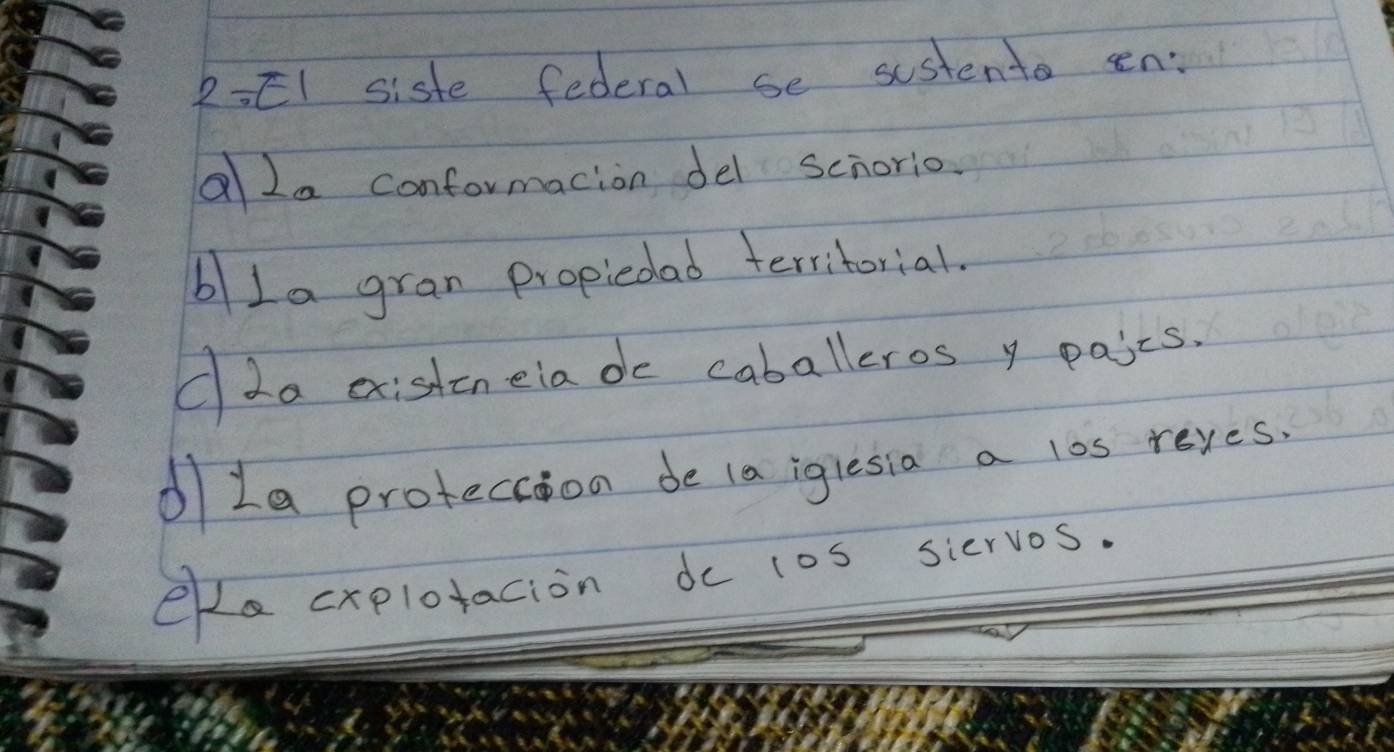 2=El siste federal se sustenta en:
a) La conformación del señorio.
b) La gran propiedad territorial.
c) La existencia de caballeros y pajes.
d) La proteccion de la iglesia a los reyes.
e) La explotación de los siervos.